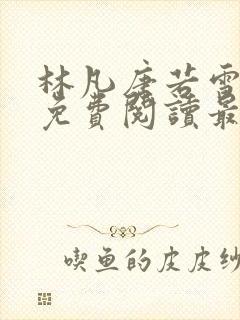 林凡唐若雪
免費閱讀最
喫魚的皮皮紗